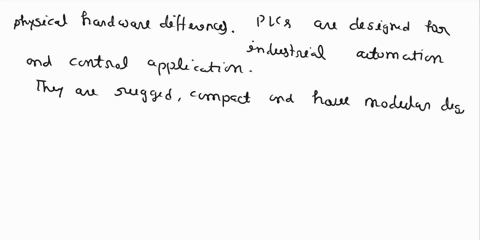 physical hardware differences. PLCs are designed for
industrial automation
and control application.
They are rugged, compact and have modular des